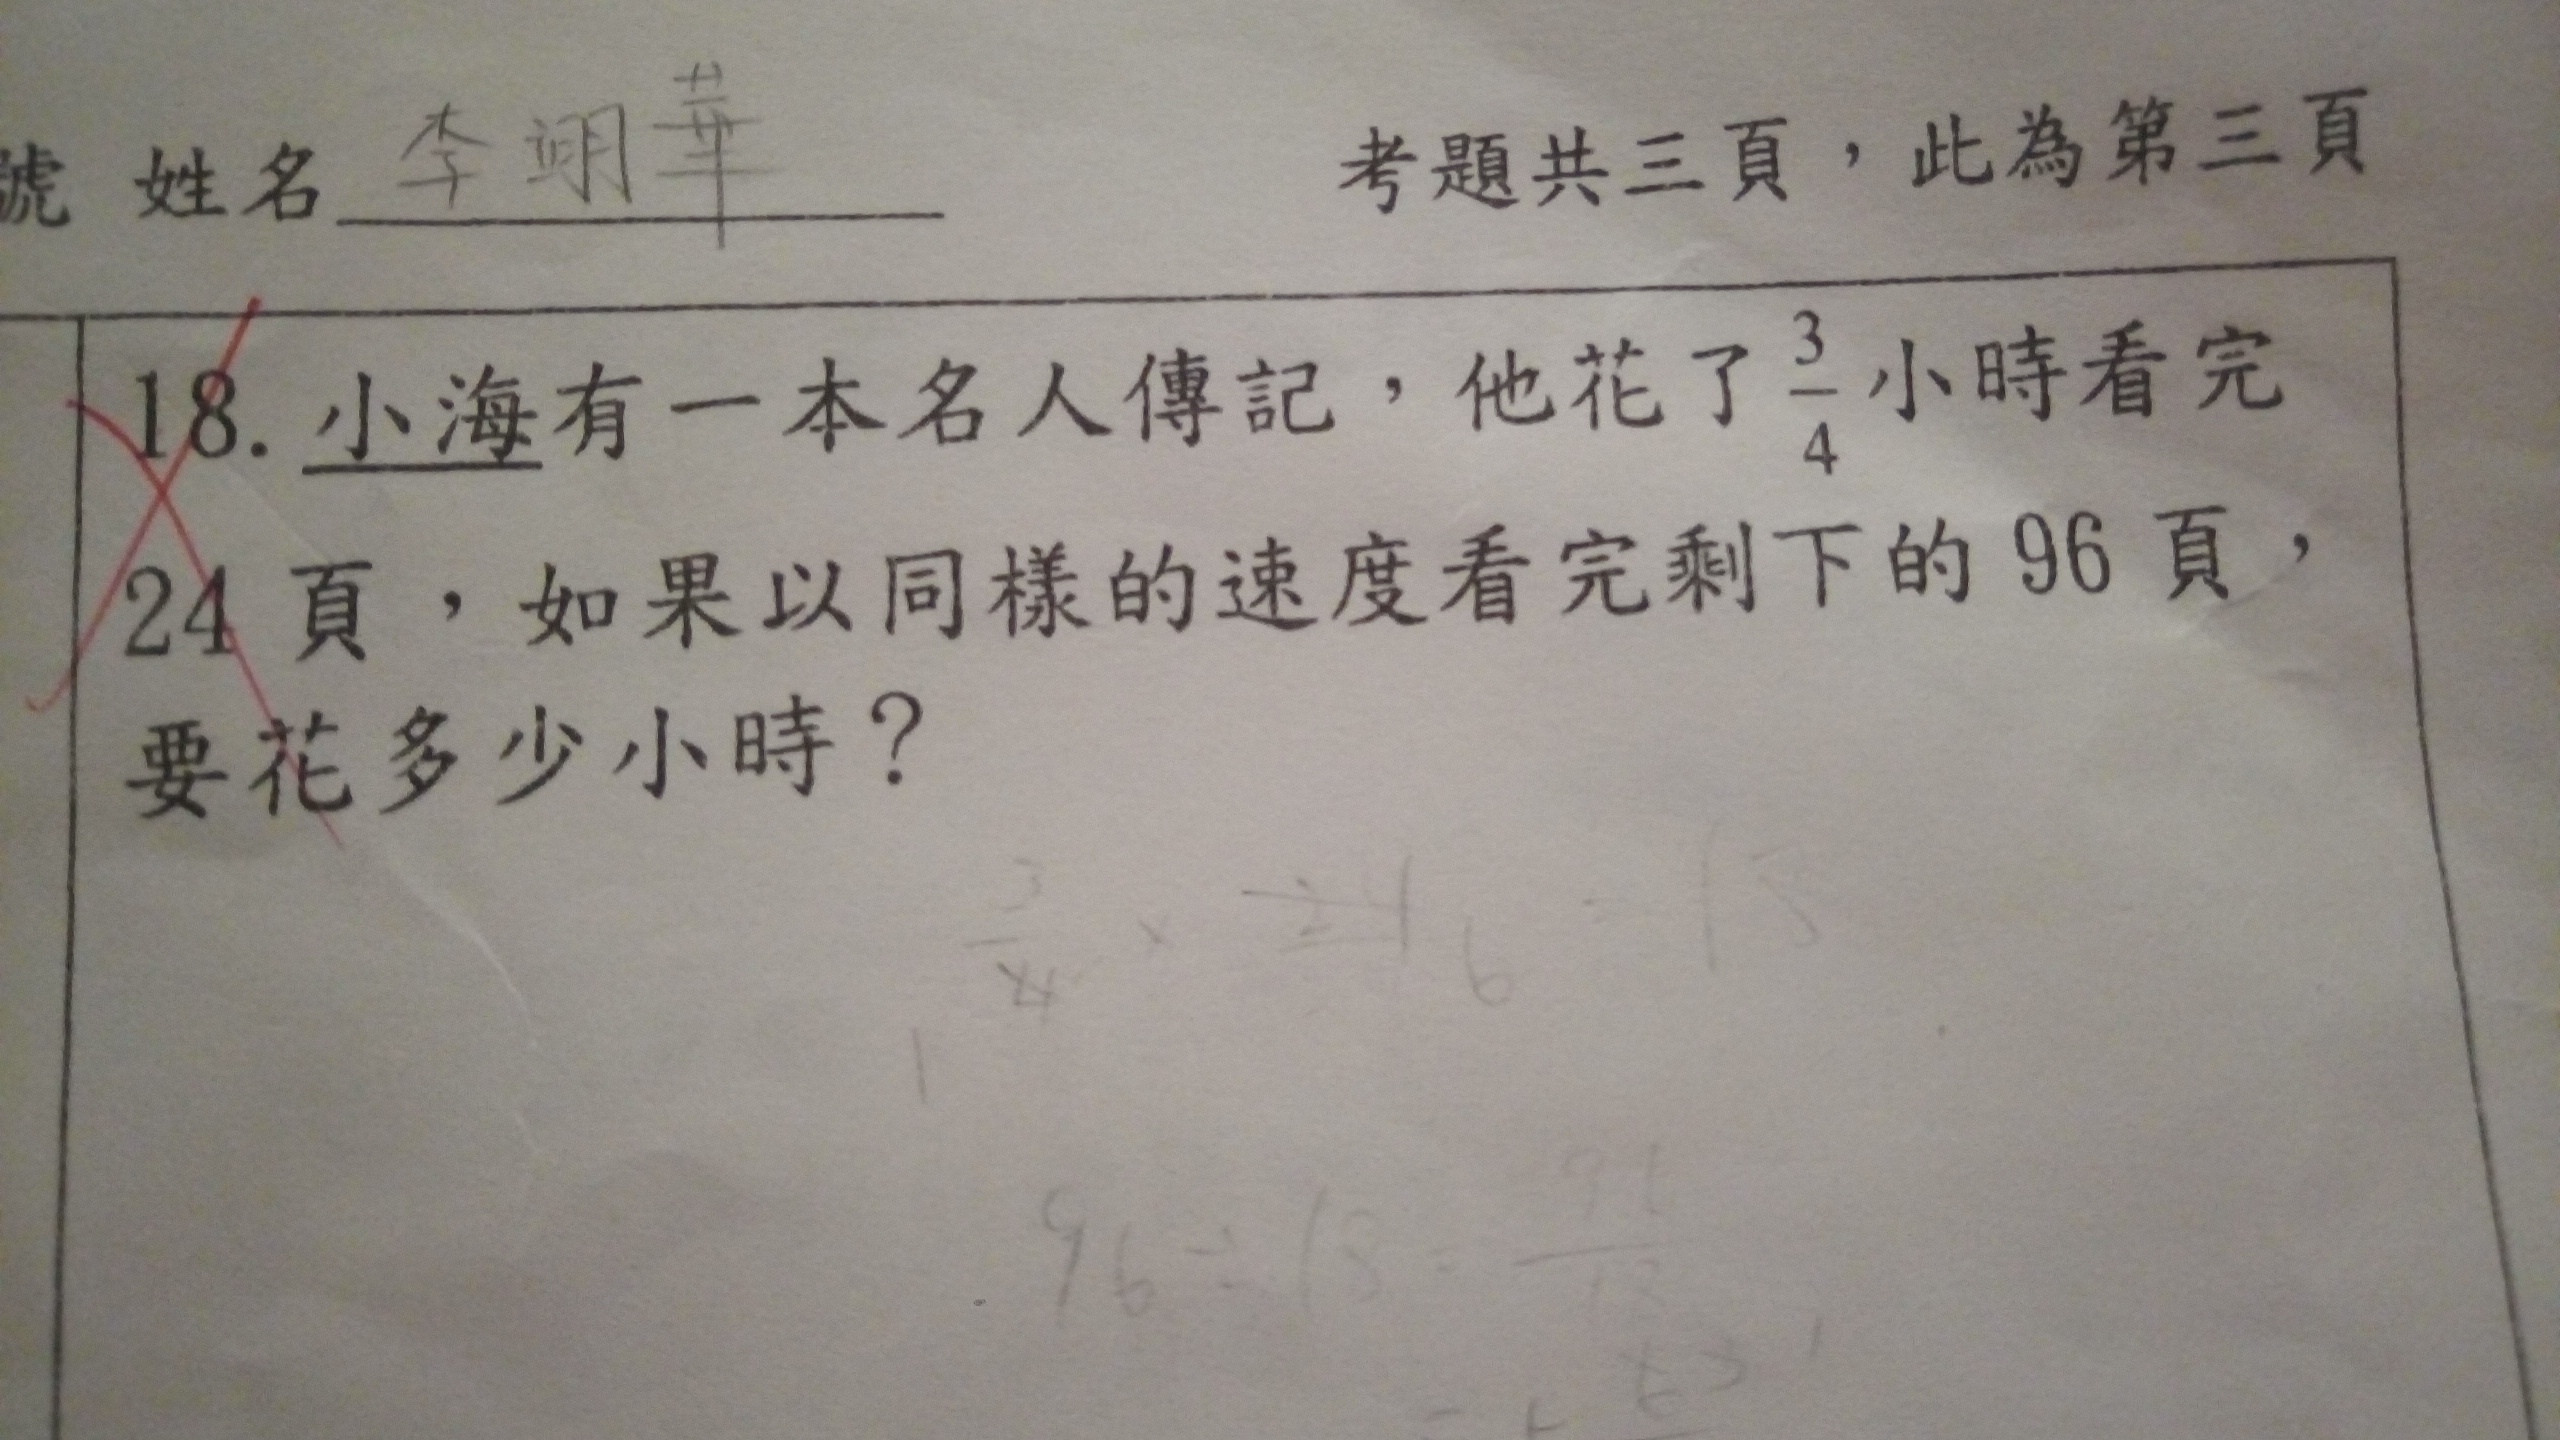 號 姓名 李翊華
考題共三頁，此為第三頁
18. 小海有一本名人傳記，他花了 3/4 小時看完
24 頁，如果以同樣的速度看完剩下的 96 頁，
要花多少小時？
3/4 × 24 6 = 18
1
96 ÷ 18 =